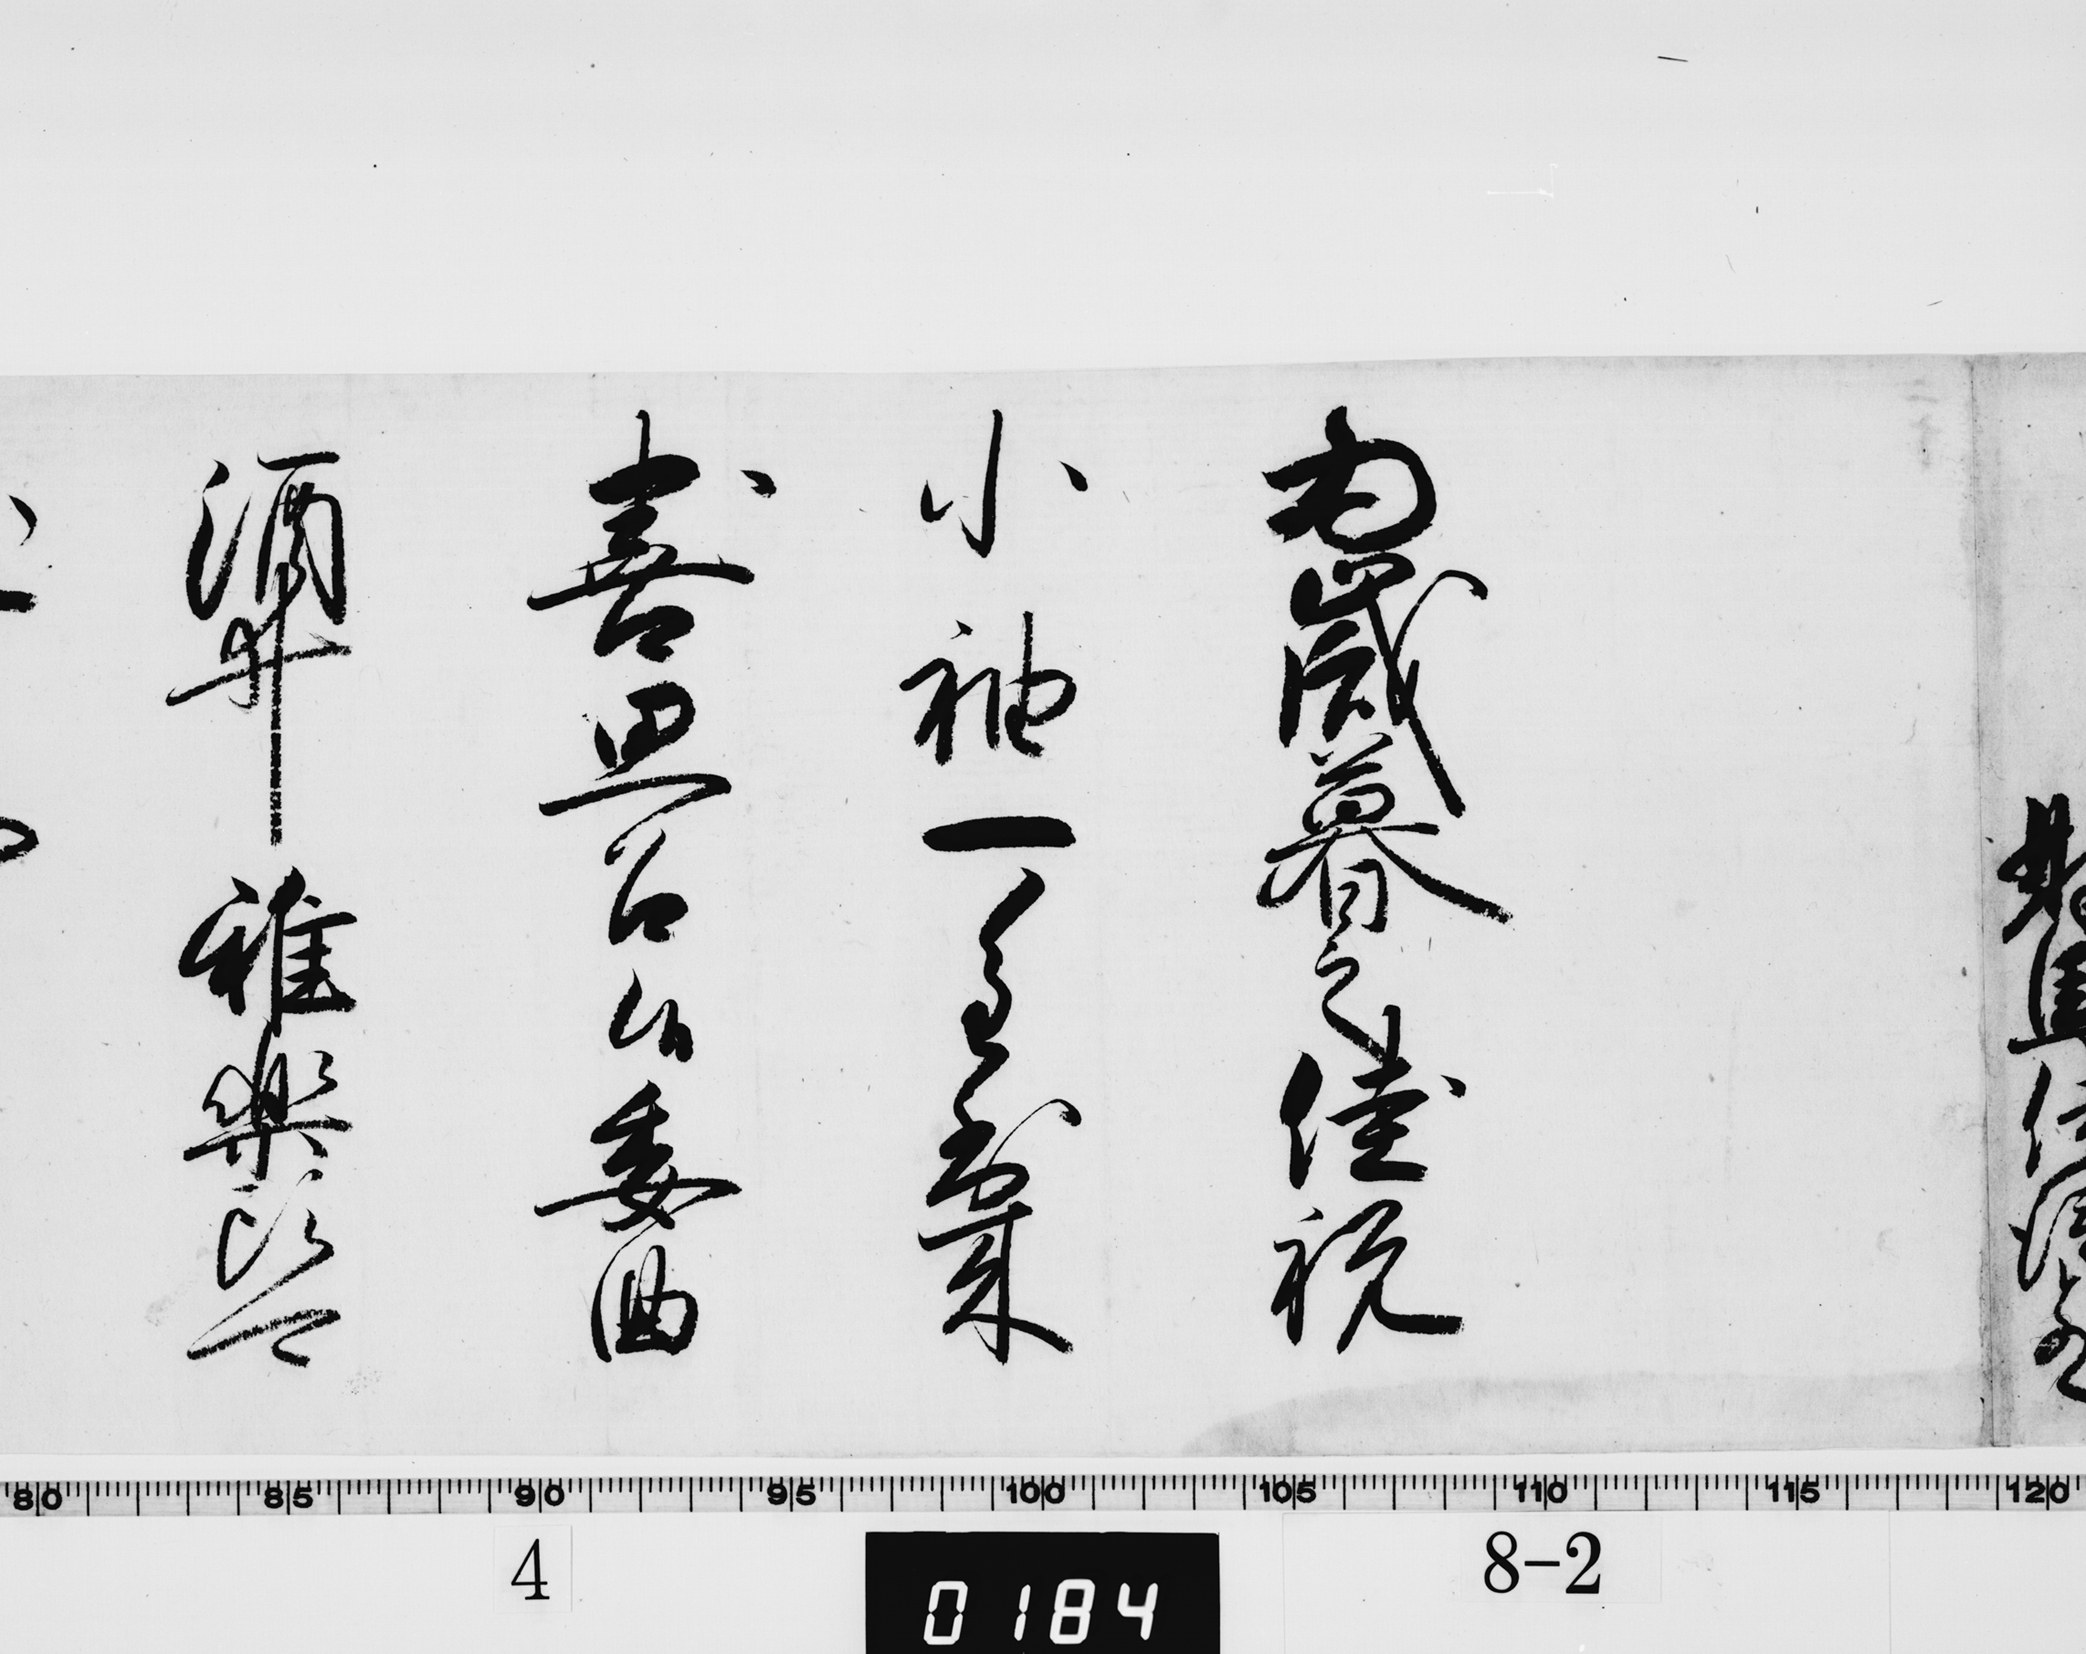 為歳暮之佳祝
小袖一重到来
喜思召候委曲
酒井雅楽頭
80 85 90 95 100 105 110 115 120
4
0184
8-2